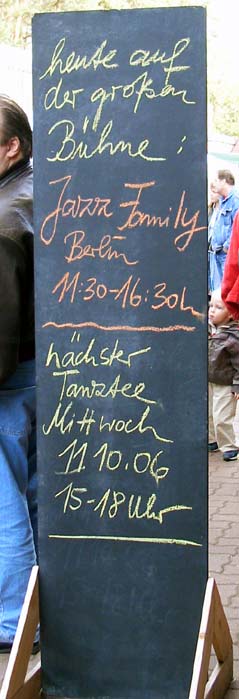 heute auf
der großen
Bühne:
Jazz Family
Berlin
11:30-16:30h
nächster
Tanztee
Mittwoch
11.10.06
15-18Uhr